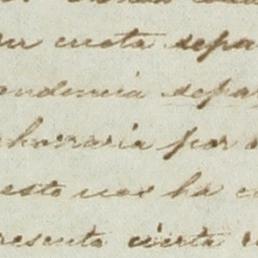 cuota sepa
endencia sepa
ahorraria por
esto nos ha c
presenta cierta